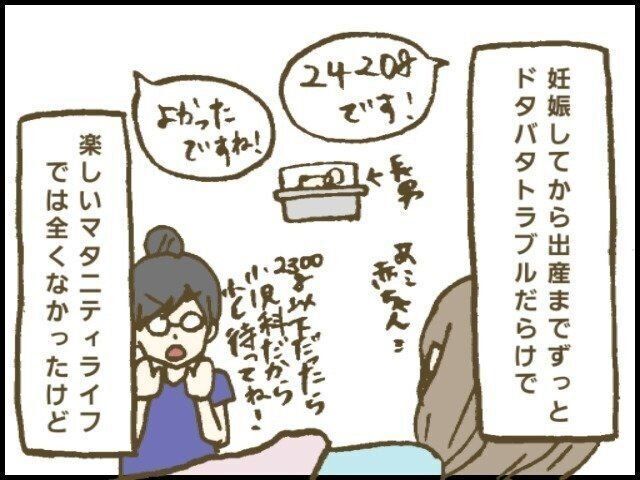 妊娠してから出産までずっと
ドタバタトラブルだらけで
2420g
です!
よかった
ですね!
←長男
あ、こ
赤ちゃん…
2300
g以下だったら
小児科だから
ちょと待っててね!
楽しいマタニティライフ
では全くなかったけど